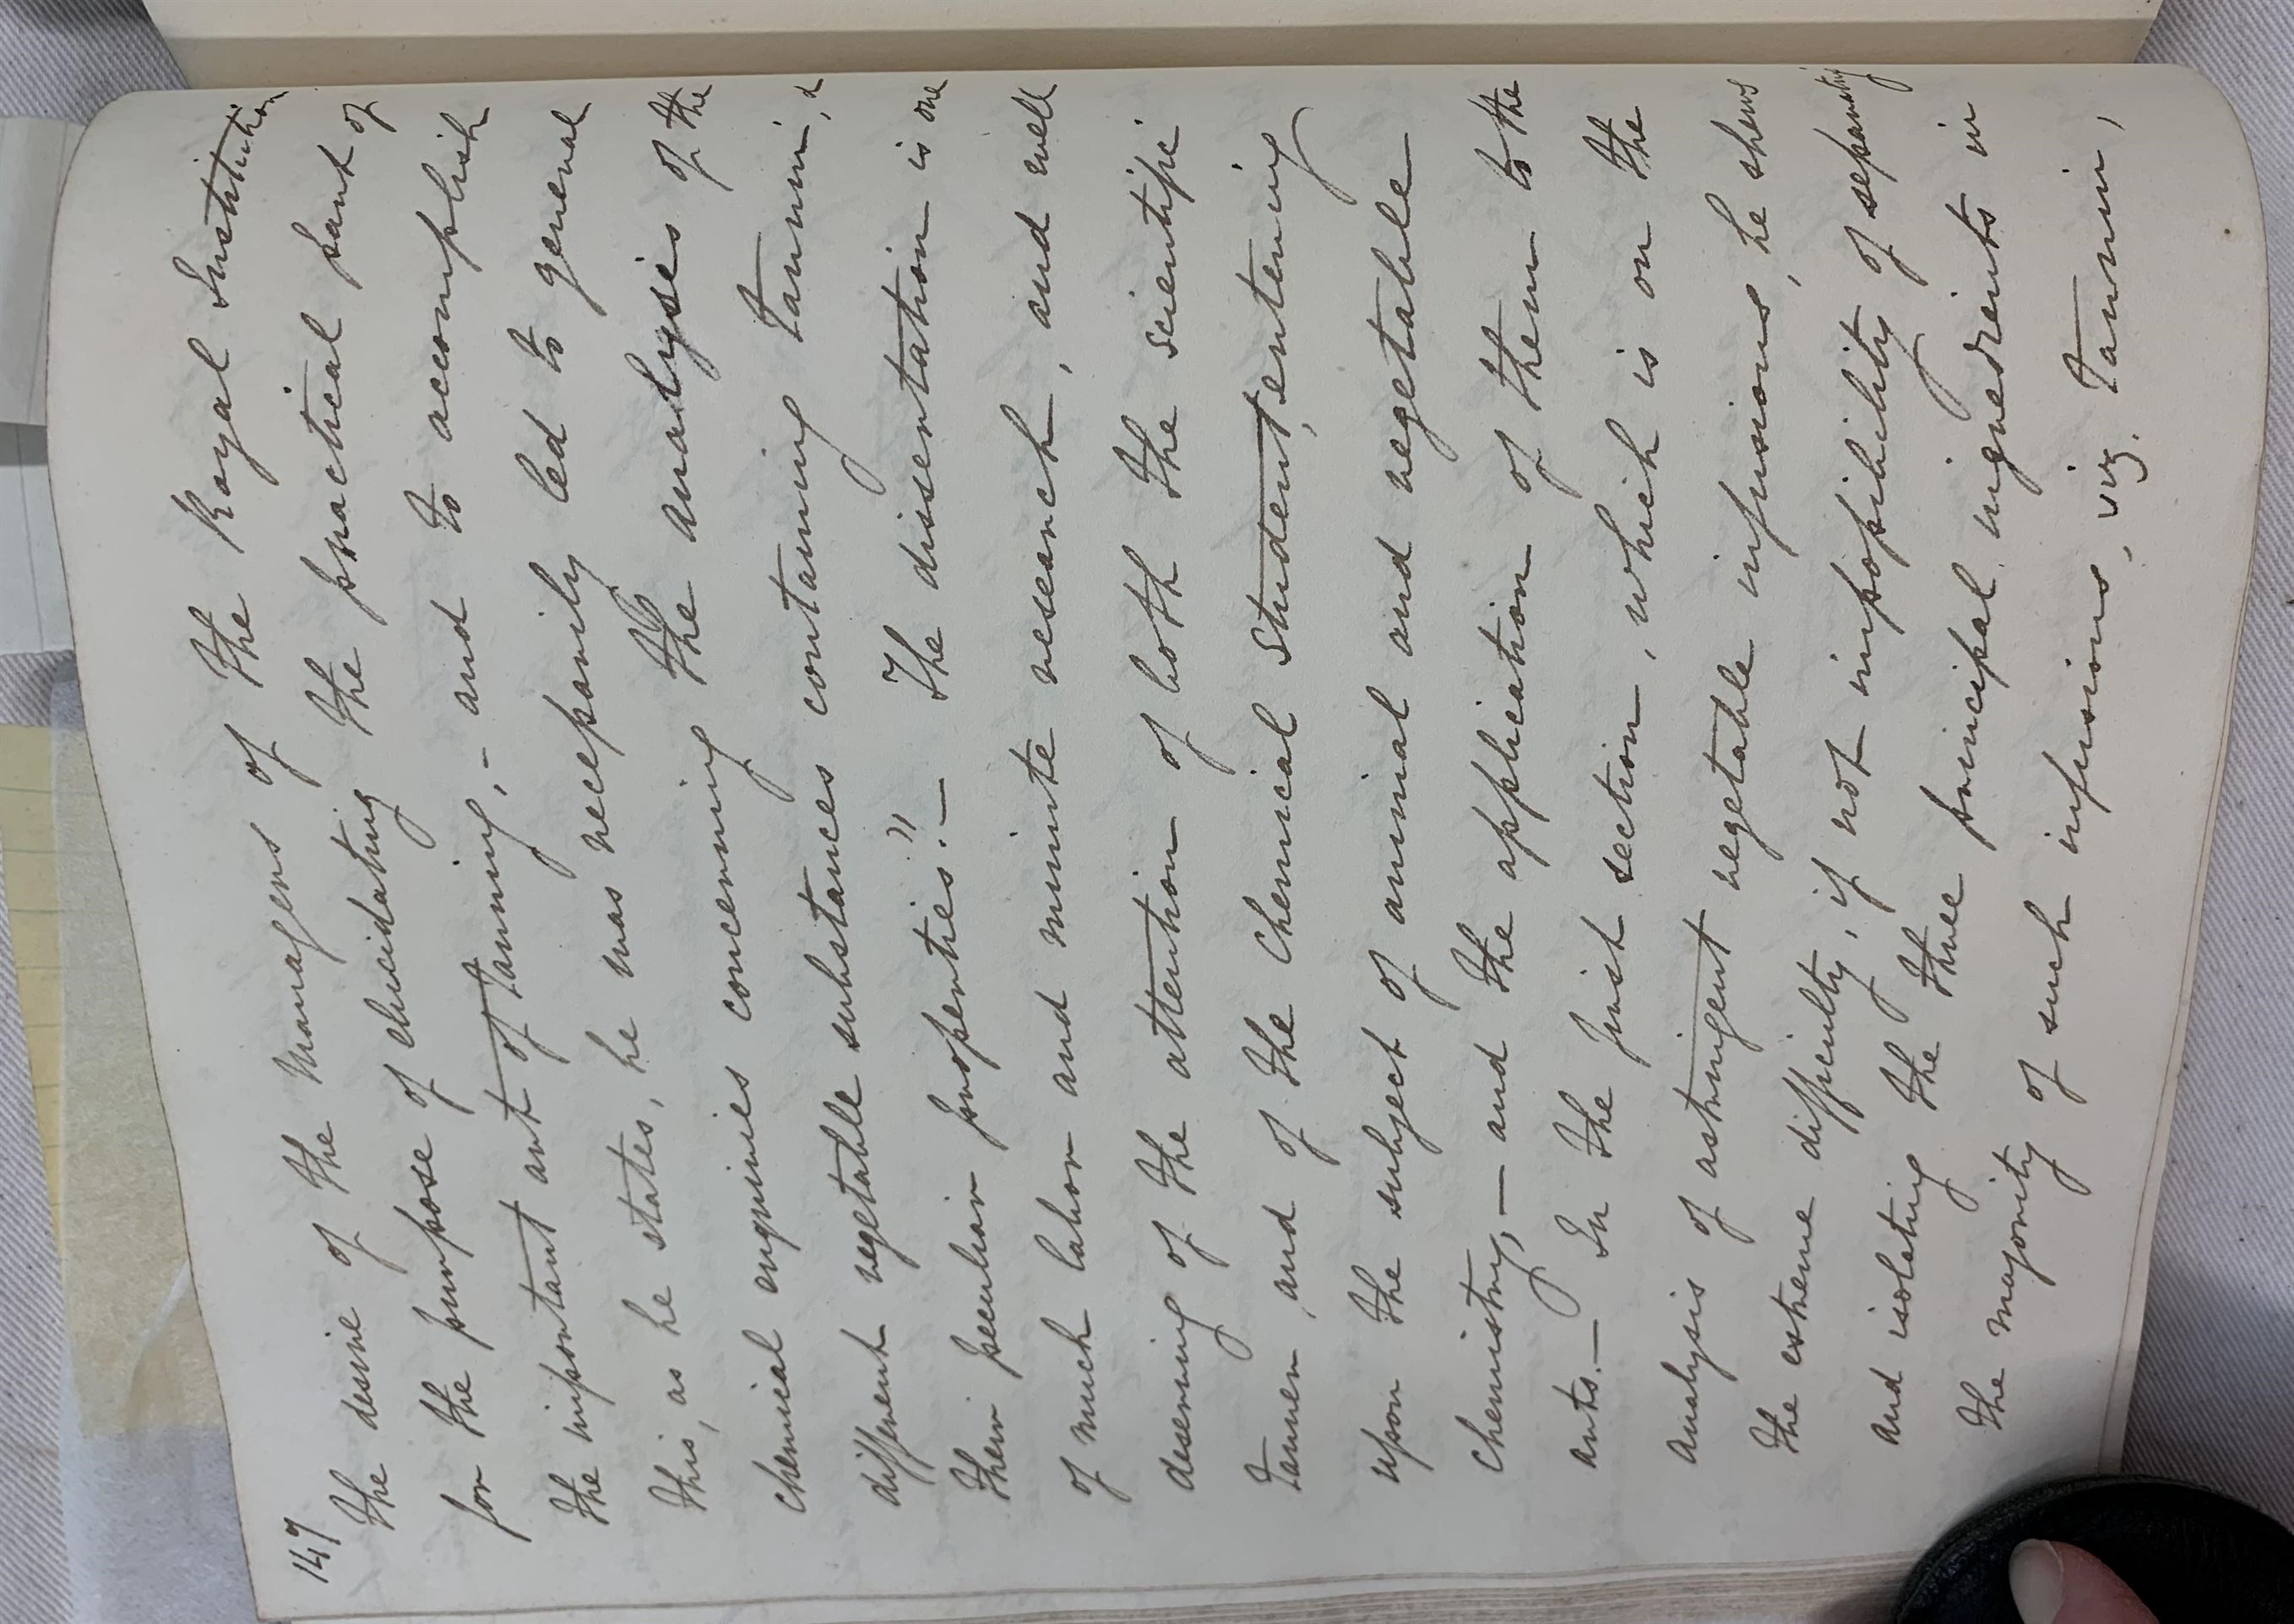 147
the desire of the Managers of the Royal Institution
for the purpose of elucidating the practical part of
the important art of tanning,- and to accomplish
this, as he states, he was necessarily led to general
chemical enquiries concerning the analysis of the
different vegetable substances containing Tannin, &
their peculiar properties".- The dissertation is one
of much labor and minute research, and well
deserving of the attention of both the scientific
Tanner and of the Chemical student, entering
upon the subject of animal and vegetable
chemistry,- and the application of them to the
arts.- In the first section, which is on the
analysis of astringent vegetable infusions, he shews
the extreme difficulty, if not impossibility of separating
and isolating the three principal ingredients in
the majority of such infusions, viz. Tannin,